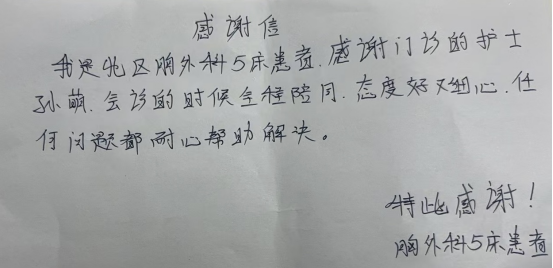 感谢信
我是北区胸外科5床患者.感谢门诊的护士
孙萌.会诊的时候全程陪同.态度好又细心.任
何问题都耐心帮助解决。
特此感谢!
胸外科5床患者